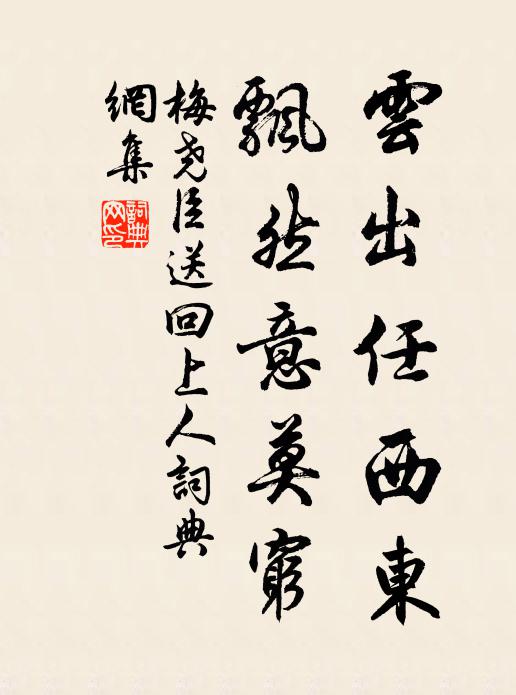 雲出任西東
飄然意莫窮
梅尧臣送回上人詞典
網集
詞典
网印